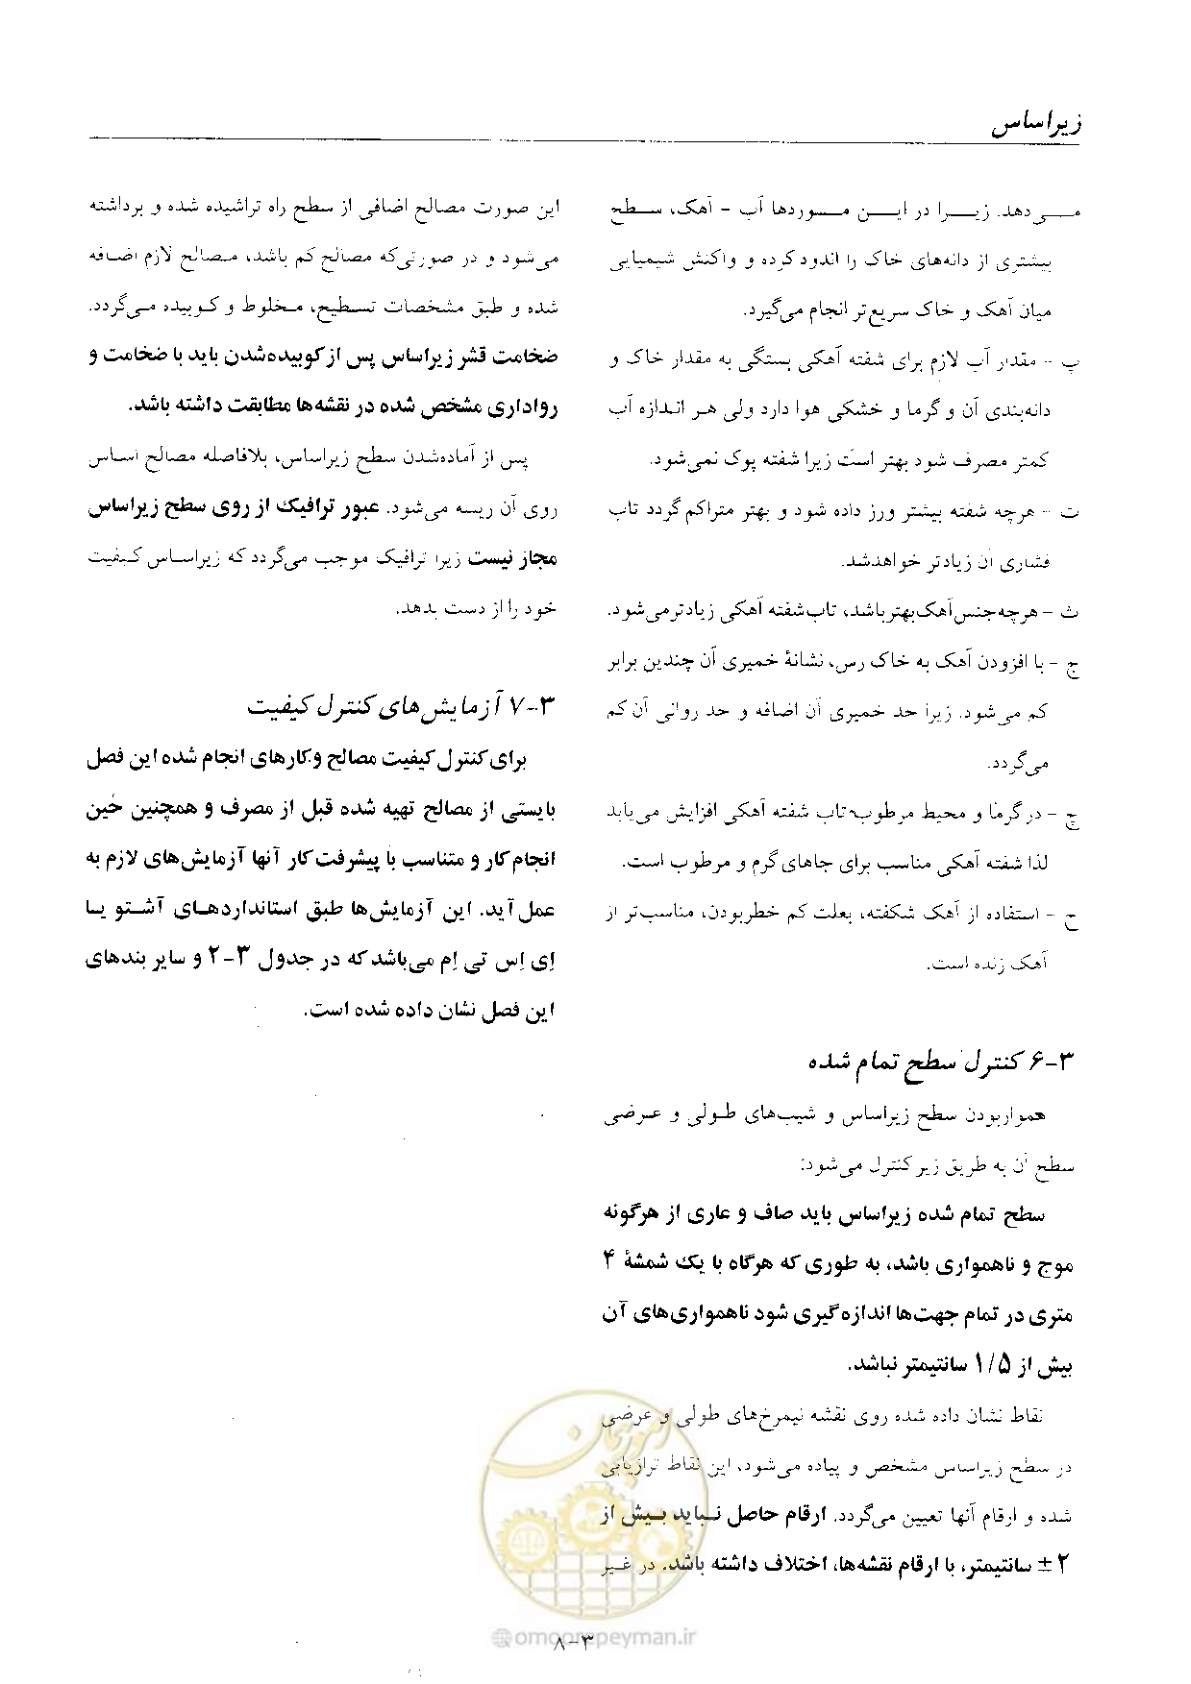 زیراساس
مــی‌دهد. زیــرا در ایــن مــوردها آب - آهک، سـطح
بیشتری از دانه‌های خاک را اندود کرده و واکنش شیمیایی
میان آهک و خاک سریع‌تر انجام می‌گیرد.
پ - مقدار آب لازم برای شفته آهکی بستگی به مقدار خاک و
دانه‌بندی آن و گرما و خشکی هوا دارد ولی هـر انـدازه آب
کمتر مصرف شود بهتر است زیرا شفته پوک نمی‌شود.
ت - هرچه شفته بیشتر ورز داده شود و بهتر متراکم گردد تاب
فشاری آن زیادتر خواهدشد.
ث - هرچه جنس آهک بهتر باشد، تاب شفته آهکی زیادتر می‌شود.
ج - با افزودن آهک به خاک رس، نشانهٔ خمیری آن چندین برابر
کم می‌شود. زیرا حد خمیری آن اضافه و حد روانی آن کم
می‌گردد.
چ - در گرما و محیط مرطوب تاب شفته آهکی افزایش می‌یابد
لذا شفته آهکی مناسب برای جاهای گرم و مرطوب است.
ح - استفاده از آهک شکفته، بعلت کم خطربودن، مناسب‌تر از
آهک زنده است.
۳-۶ کنترل سطح تمام شده
هموار بودن سطح زیراساس و شیب‌های طـولی و عـرضی
سطح آن به طریق زیر کنترل می‌شود:
سطح تمام شده زیراساس باید صاف و عاری از هرگونه
موج و ناهمواری باشد، به طوری که هرگاه با یک شمشهٔ ۴
متری در تمام جهت‌ها اندازه‌گیری شود ناهمواری‌های آن
بیش از ۱/۵ سانتیمتر نباشد.
نقاط نشان داده شده روی نقشه نیمرخ‌های طولی و عرضی
در سطح زیراساس مشخص و پیاده می‌شود، این نقاط ترازیابی
شده و ارقام آنها تعیین می‌گردد. ارقام حاصل نـباید بـیش از
±۲ سانتیمتر، با ارقام نقشه‌ها، اختلاف داشته باشد. در غـیر
این صورت مصالح اضافی از سطح راه تراشیده شده و برداشته
می‌شود و در صورتی‌که مصالح کم باشد، مـصالح لازم اضـافه
شده و طبق مشخصات تسطیح، مـخلوط و کـوبیده مـی‌گردد.
ضخامت قشر زیراساس پس از کوبیده‌شدن باید با ضخامت و
رواداری مشخص شده در نقشه‌ها مطابقت داشته باشد.
پس از آماده‌شدن سطح زیراساس، بلافاصله مصالح اساس
روی آن ریسه می‌شود. عبور ترافیک از روی سطح زیراساس
مجاز نیست زیرا ترافیک موجب می‌گردد که زیراسـاس کـیفیت
خود را از دست بدهد.
۳-۷ آزمایش‌های کنترل کیفیت
برای کنترل کیفیت مصالح و کارهای انجام شده این فصل
بایستی از مصالح تهیه شده قبل از مصرف و همچنین حین
انجام کار و متناسب با پیشرفت کار آنها آزمایش‌های لازم به
عمل آید. این آزمایش‌ها طبق استانداردهـای آشـتو یـا
اِی اِس تی اِم می‌باشد که در جدول ۳-۲ و سایر بندهای
این فصل نشان داده شده است.
امور پیمان
@omoorepeyman.ir
۳-۸